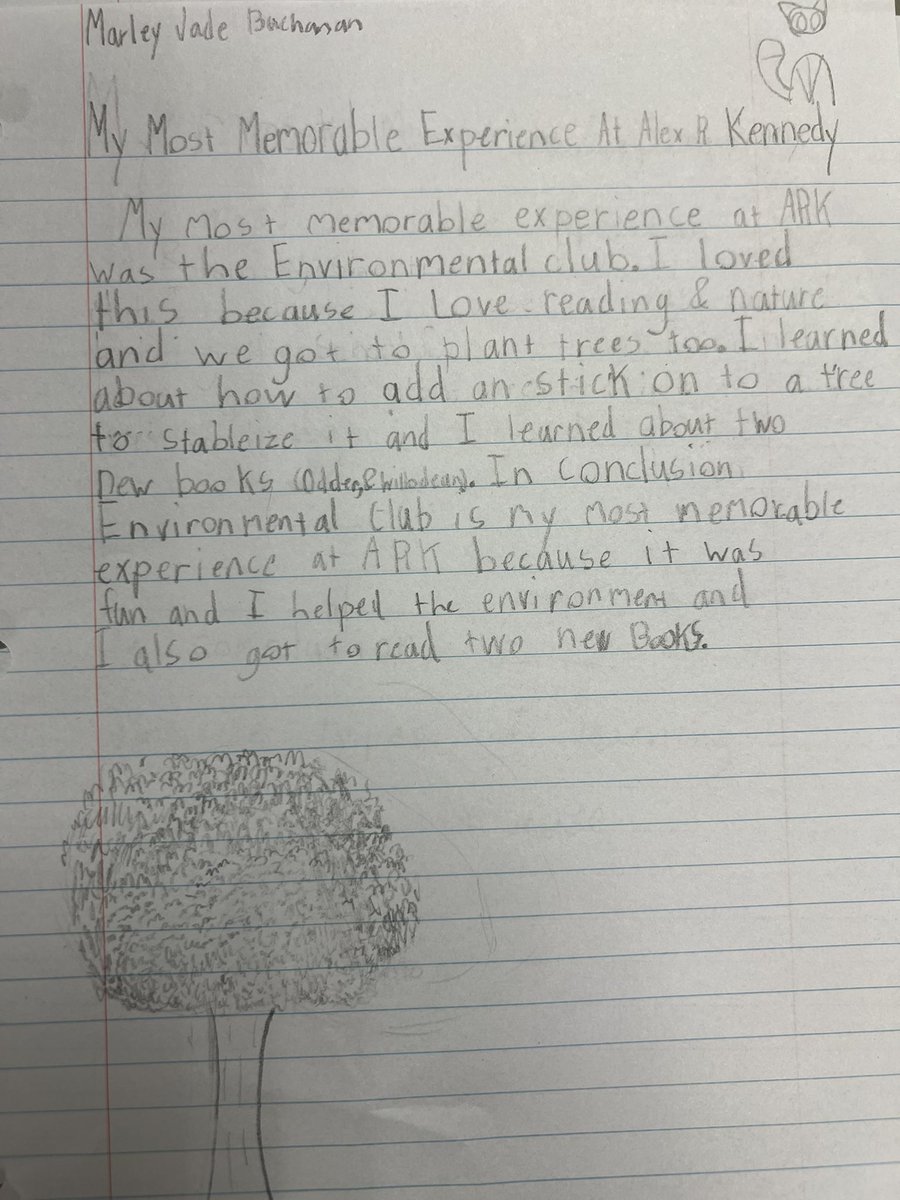 Marley Jade Buchanan
My Most Memorable Experience At Alex R Kennedy
My most memorable experience at ARK
was the Environmental club. I loved
this because I love reading & nature
and we got to plant trees too. I learned
about how to add an stick on to a tree
to stableize it and I learned about two
new books (Odder & Willodean). In conclusion
Environmental Club is my most memorable
experience at ARK because it was
fun and I helped the environment and
I also got to read two new Books.